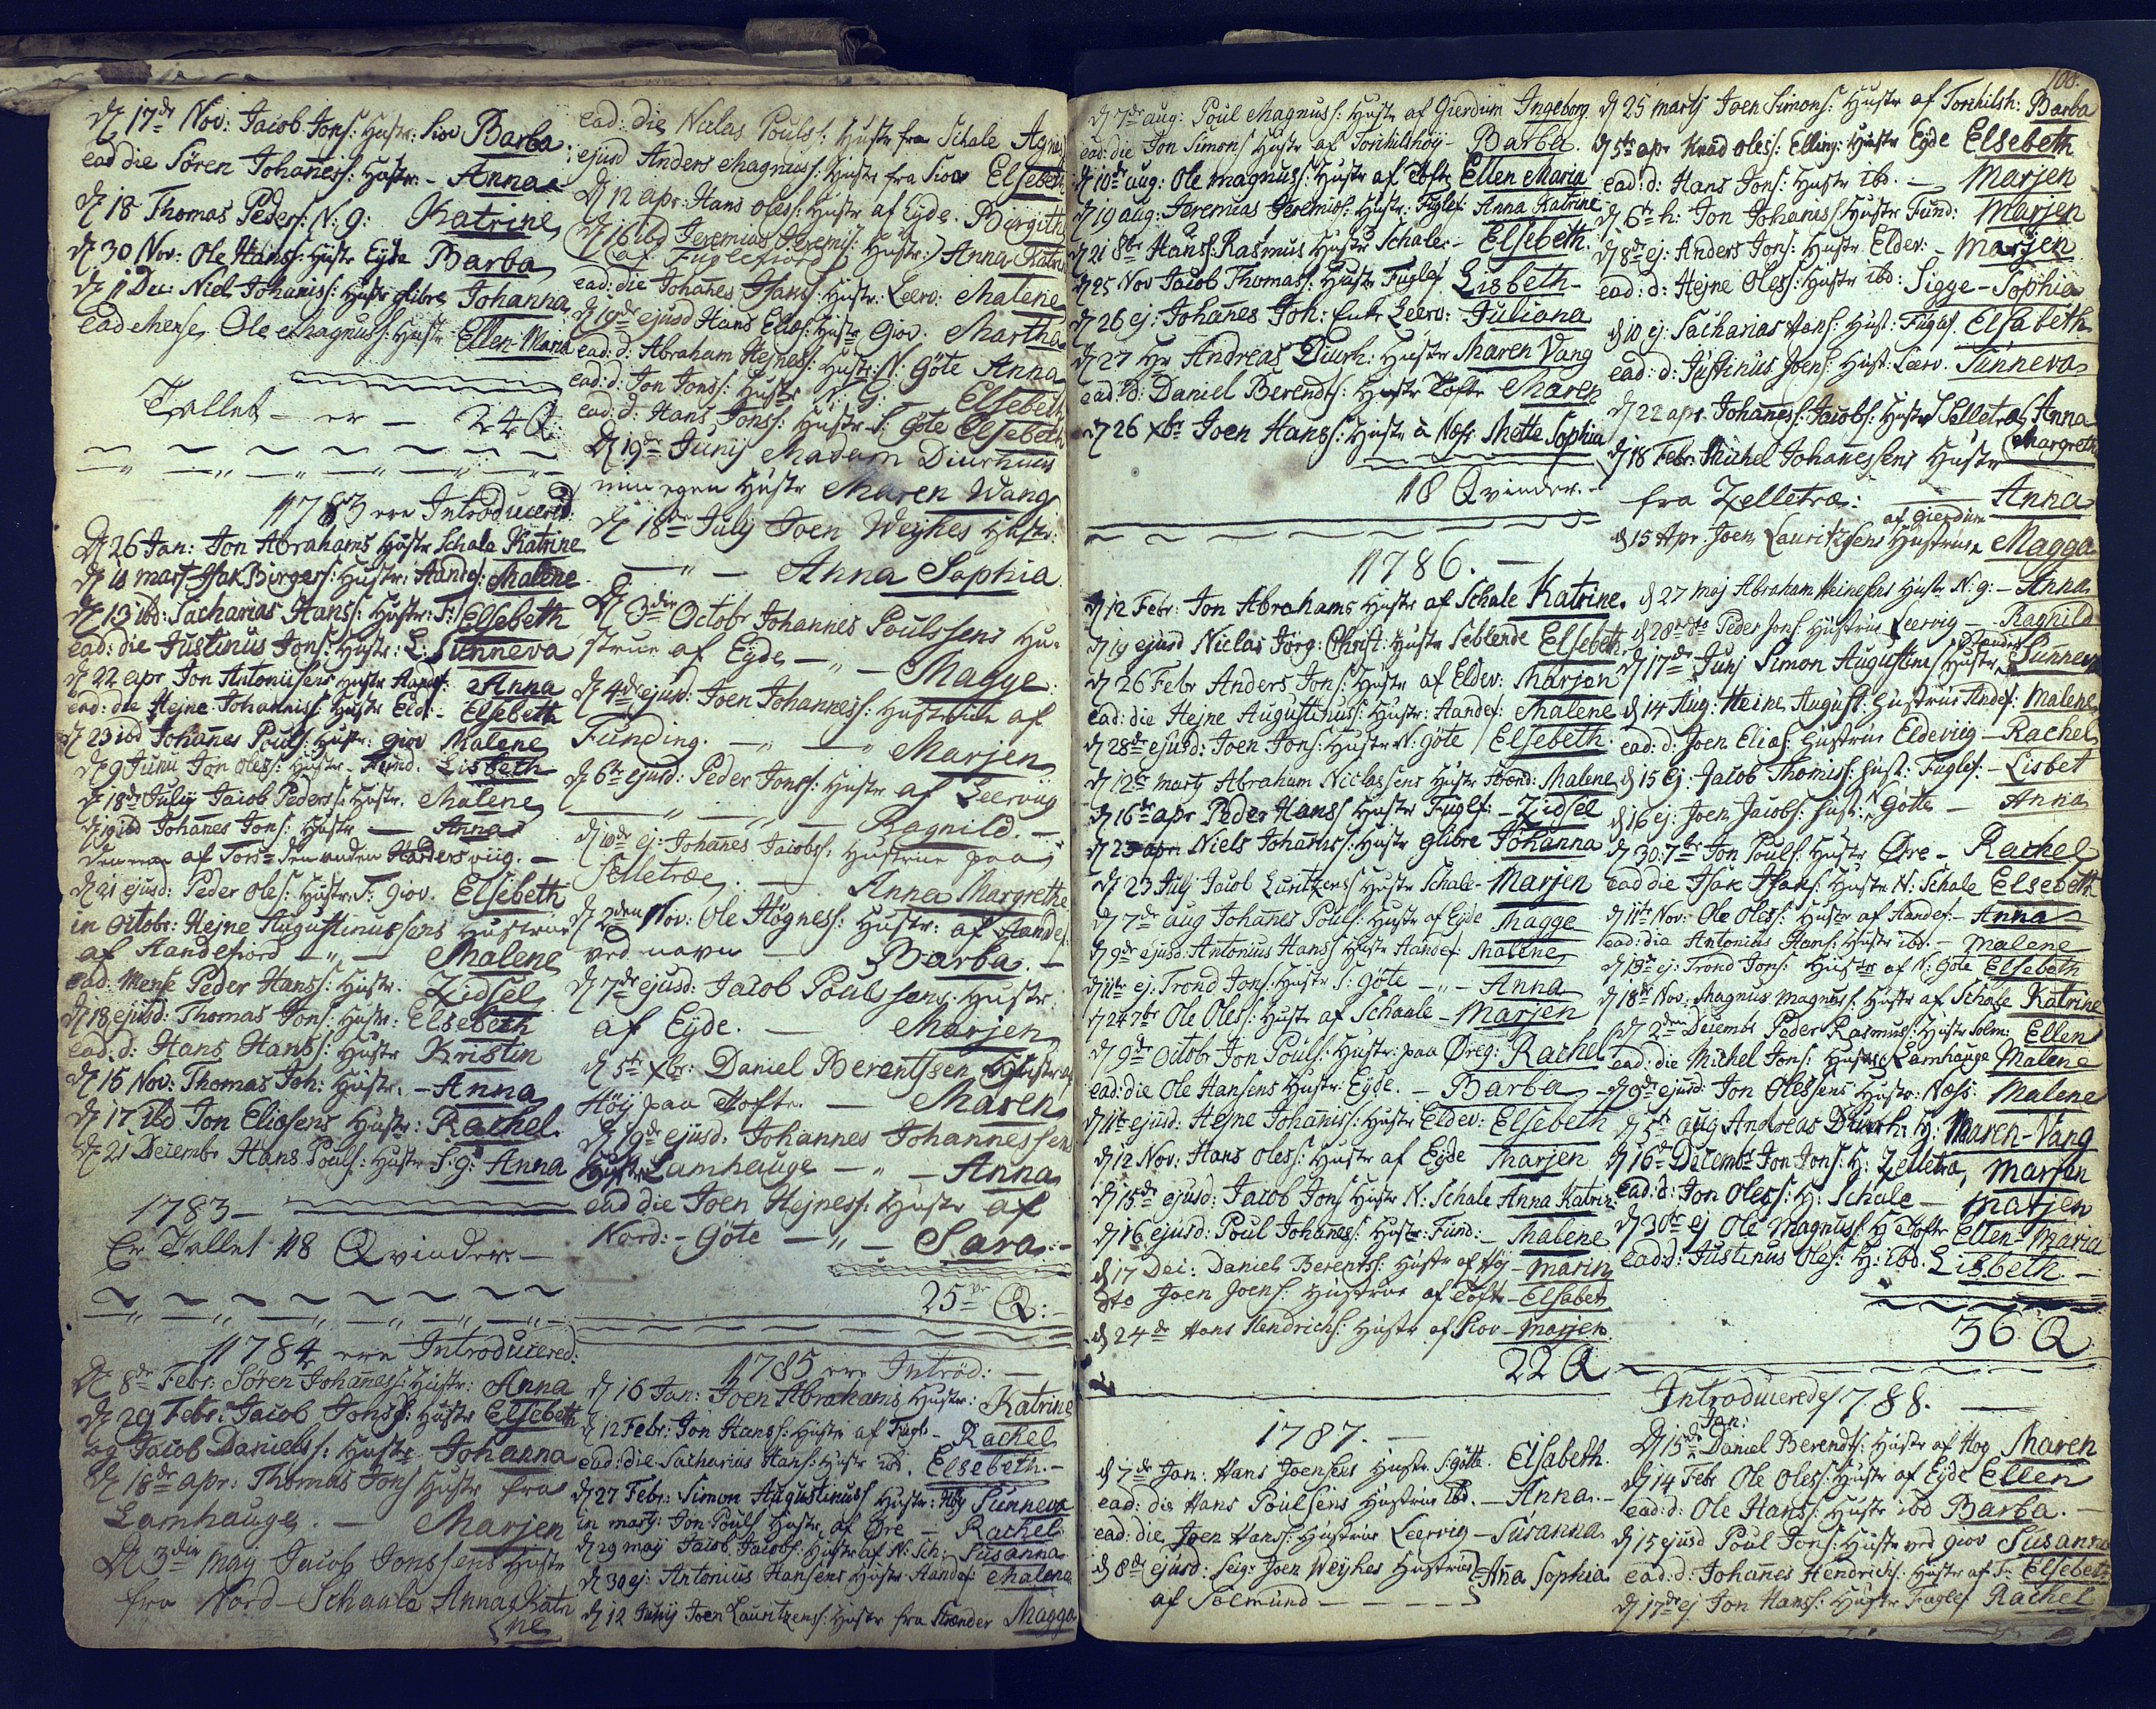 D 17de Nov: Jacob Jons: Hustr: Siov Barba
ead die Sören Johannes: Hustr: - Anna
D 18 Thomas Peders: N: G: Katrine
D 30 Nov: Ole Hanss: Hustr Eyde Barba
D 1 Dec: Niels Johaniss: Hustr glibre Johanna
Ead Mense Ole Magnuss: Hustr Ellen-Maria
Tallet - er - 24 Q:
1783 ere Introducered:
D 26 Jan: Jon Abrahams Hustr Schale Katrine
D 10 mart Isak Birgers: Hustr: Andef: Malene
D 13 ibd: Sacharias Hans: Hustr: F: Elsebeth
ead: die Justinus Jons: Hustr: L: Sunneva
D 22 apr Jon Antoniisens Hustr Andef: Anna
ead: die Hejne Johaniss: Hustr Eld: - Elsebeth
D 23 ibd Johanes Pouls: Hustr: giov Malene
D 9 Junii Jon Oless: Hustr - Fund. Lisbeth
D 18de Julij Jacob Peders: Hustr. Malene
D 19 ibd Johanes Jons: Hustr — Anna
Den ene af Tors= den anden Harders viig. -
D 21 ejusd: Peder Oles: Hustr: S: giov. Elsebeth
in Octobr: Hejne Augustinussens Hustrue
af Handefiord -"- Malene
ead: Mense Peder Hanss: Hustr. Zidsel
D 18 ejusd: Thomas Jons: Hustr: Elsebeth
ead: d: Hans Hanss: Hustr Kristin
D 15 Nov: Thomas Joh: Hustr. - Anna
D 17 ibd Jon Eliæsens Hustr: Rachel
D 21 Decembr Hans Pouls: Hustr S: g: Anna
1783 -
Er Tallet 18 Qvinder. -
1784 ere Introducered:
D 8de Febr. Sören Johanes: Hustr: Anna
D 29 Febr: Jacob Jonss: Hustr Elsebeth
og Jacob Daniels: Hustr. Johanna
D 18de apr: Thomas Jons Hustr fra
Lamhauge. - Marjen
D 3die Maij Jacob Jonssens Hustr
fra Nord-Schaale Anna Katri
ne
ead: die Niclas Pouls: Hustr fra Schale Agnes
ejusd Anders Magnuss: Hustr fra Siov Elsebeth
D 12 apr: Hans Oless: Hustr af Eyde. Birgith
D 16 ibd Jeremias Jeremis: Hustr: Anna Katri
af Fuglefiord
ead: die Johanes Hans: Hustr: Leerv: Malene
D 19de ejusd Hans Elias: Hustr Giov: Martha
ead: d: Abraham Hejnes: Hustr: N: Göte Anna
ead: d: Jon Jonss: Hustr N: G: - Elsebeth
ead: d: Hans Jonss: Hustr S: Göte Elsebeth
D 19de Junij Madam Diurhuus
min egen Hustr Maren Wang
D 18de July Joen Weyhes Hustr:
-"- Anna Sophia
D 3die Octobr Johannes Poulssens Hu-
strue af Eyde -"- Magge
D 4de ejusd: Joen Johanness: Hustrue af
Funding. -"- Marjen
D 6te ejusd: Peder Jonss: Hustr af Leerviig
-"- Ragnild. -
D 10de ej: Johanes Jacobs: Hustrue paa
Selletræ. - Anna Margrethe
D 2den Nov: Ole Högness: Hustr: af Andef:
ved navn - Barba. -
D 7de ejusd: Jacob Poulssens: Hustr:
af Eyde. - Marjen
D 5te xbr: Daniel Berentsen Hustr af
Höj paa Tofte. - Maren
D 19de ejusd: Johannes Johannessens
Hustr Lamhauge -"- Anna
ead die Joen Hejness: Hustr af
Nord: - Göte -"- Sara. -
25ve Q: -
1785 ere Introd: -
D 16 Jan: Joen Abrahams Hustr: Katrine
D 12 Febr: Jon Hanss: Hustr af Fugl: - Rachel
ead: die Sacharias Hans: Hustr ibd. Elsebeth. -
D 27 Febr: Simon Augustinuss Hustr: Höj Sunneva
in marts: Jon Pouls Hustr af Öre - Rachel
D 29 maij Jacob Jacobs: Hustr af N: Sch: Susanna
D 30 ej: Antonius Hansens Hustr Andef: Malena
D 12 Junij Joen Lauritzens: Hustr fra Strænder Magga
108.
D 7de aug: Poul Magnuss: Hustr af Gierdum Ingeborg
ead: die Jon Simons Hustr af Torkilshöy - Barba
D 10de aug: Ole Magnuss: Hustr af Tofte Ellen Maria
D 19 aug: Jeremias Jeremiss: Hustr: Fuglef: Anna Katrine
D 21 8br Hans: Rasmus Hustr Schale - Elsebeth
D 25 Nov Jacob Thomas: Hustr Fuglef Lisbeth -
D 26 ej: Johanes Joh: Enke Leerv: Juliana
D 27 Hr Andreas Diurh: Hustr Maren Vang
ead: d: Daniel Berendts: Hustr Tofte Maren
D 26 xbr Joen Hanss: Hustr a Næss Mette Sophia
18 Qvinder. -
1786. -
D 12 Febr: Jon Abrahams Hustr af Schale Katrine
D 19 ejusd Niclas Jörg: Christ: Hustr Seblende Elsebeth
D 26 Febr Anders Jons: Hustr af Eldev: Marjen
ead: die Hejne Augustinuss: Hustr: Andef: Malene
D 28de ejusd: Joen Jons: Hustr N: Göte Elsebeth
D 12te marty Abraham Niclassens Hustr Strend: Malene
D 16de apr Peder Hanss Hustr Fuglef: - Zidsel
D 23 apr: Niels Johaniss: Hustr glibre Johanna
D 23 July Jacob Luritzens Hustr Schale - Marjen
D 7de aug Johanes Pouls: Hustr af Eyde Magge
D 9de ejusd: Antonius Hans: Hustr Andef: Malene
D 11te ej: Trond Jons: Hustr S: Göte -"- Anna
D 24 7br Ole Oles: Hustr af Schaale - Marjen
D 9de Octobr Jon Pouls: Hustr: paa Öreg: Rachel
ead: die Ole Hansens Hustr: Eyde. - Barba
D 11te ejusd: Hejne Johaniss: Hustr Eldev: Elsebeth
D 12 Nov: Hans Oless: Hustr af Eyde Marjen
D 15de ejusd: Jacob Jons Hustr N: Schale Anna Katrin
D 16 ejusd: Poul Johanes: Hustr: Fund: - Malene
D 17 Dec: Daniel Berents: Hustr af Höj - Marin
dto Joen Joens: Hustrue af Tofte - Elsabet
D 24de Hans Hendrichs: Hustr af Siov - Marjen
22 Q
1787. -
D 7de Jan: Hans Joensens Hustr. S: Götte. Elsabeth.
ead: die Hans Poulsens Hustrue ibd. - Anna. -
ead: die Joen Hanss: Hustrue Leervig - Susanna
D 8de ejusd: Seig: Joen Weyhes Hustrue Ana Sophia
af Solmund - - - -
D 25 marty Joen Simons: Hustr af Torkilsh: Barba
D 5te apr Knud Oles: Elling: Hustr Eyde Elsebeth
ead: d: Hans Jons: Hustr ibd. - Marjen
D 6te h: Jon Johanis: Hustr Fund: Marjen
D 8de ej: Anders Jons: Hustr Eldev: - Marjen
ead: d: Hejne Oless: Hustr ibd: Sigge-Sophia
D 10 ej: Sacharias Hans: Hust: Fuglef. Elsabeth
ead: d: Justinus Joens: Hust: Leerv. Sunneva
D 22 apr Johaness: Jacobs: Hustr Selletræ Anna
Margreth
D 18 Febr: Michel Johanessens Hustr
fra Zelletræ: — Anna
af Gierdum
D 15 Apr. Joen Lauritzens Hustrue Magga
D 27 maj Abraham Heinesens Hustr N. g: - Anna
D 28de dto Peder Jons Hustrue Leervig - Ragnild
D 17de Junj Simon Augustins Hustr Sunneva
D 14 Aug: Heine August: Hustrue Andef: Malene
ead: d: Joen Elias: Hustrue Eldeviig - Rachel
D 15 Ej: Jacob Thomis: Hust: Fuglef. - Lisbet
D 16 ej: Joen Jacobs: Hust: Götte - Anna
D 30: 7br Jon Pouls: Hustr Öre - Rachel
ead die Isak Isaks: Hustr N: Schale Elsebeth
D 11te Nov: Ole Oles: Hustr af Andef: - Anna
ead: die Antonius Hans: Hustr ibd. - Malene
D 13de ej: Trond Jons: Hustr af N: Göte Elsebeth
D 18de Nov: Magnus Magnuss: Hustr af Schale Katrine
D 2den Decembr Peder Rasmus: Hustr Solm: Ellen
ead: die Michel Jons: Hustr Lamhauge Malene
D 9de ejusd: Jon Olessens Hustr: Næss. Malene
D 5te aug Andreas Diurh: H: Maren-Vang
D 16de Decembr Jon Jons: H: Zelletræ, Marjen
ead: d: Jon Oles: H: Schale - Marjen
D 30te ej Ole Magnus: H Tofte Ellen-Maria
ead: d: Justinus Oles: H: ibd. Lisbeth -
36 Q
Introducerede 1788. -
Jan:
D 13de Daniel Berendts: Hustr af Hög Maren
D 14 Febr Ole Oless: Hustr af Eyde Ellen
ead: d: Ole Hans: Hustr ibd Barba. -
D 15 ejusd Poul Jons: Hustr ved giov Susanna
ead: d: Johanes Hendrichs: Hustr af F: Elsebeth
D 17de ej Jon Hanss: Hustr Fuglef Rachel